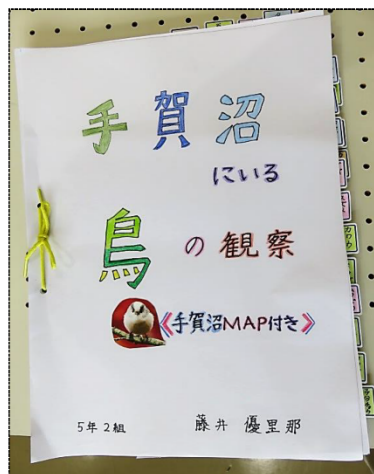 手賀沼
にいる
鳥の観察
《手賀沼MAP付き》
5年2組 藤井 優里那